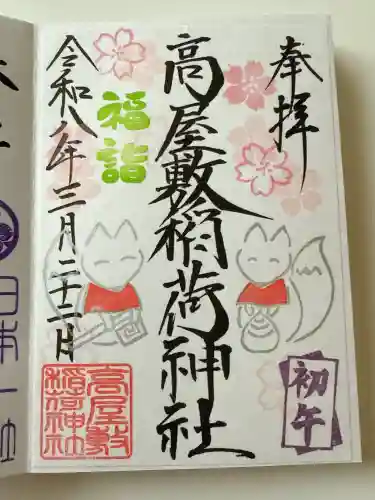 奉拝
高屋敷稲荷神社
初午
福詣
令和八年三月二十二日
高屋敷
稲荷神社
日本一社